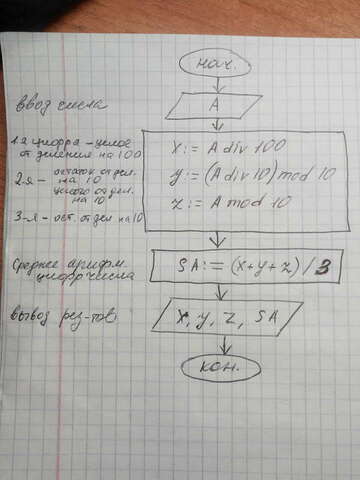 нач.
ввод числа
A
1-я цифра – целое
от деления на 100
2-я – остаток от дел.
на 10
целого от дел.
на 10
3-я – ост. от дел на 10
x := A div 100
y := (A div 10) mod 10
z := A mod 10
Среднее арифм.
цифр числа
SA := (x+y+z) / 3
вывод рез-тов
x, y, z, SA
кон.